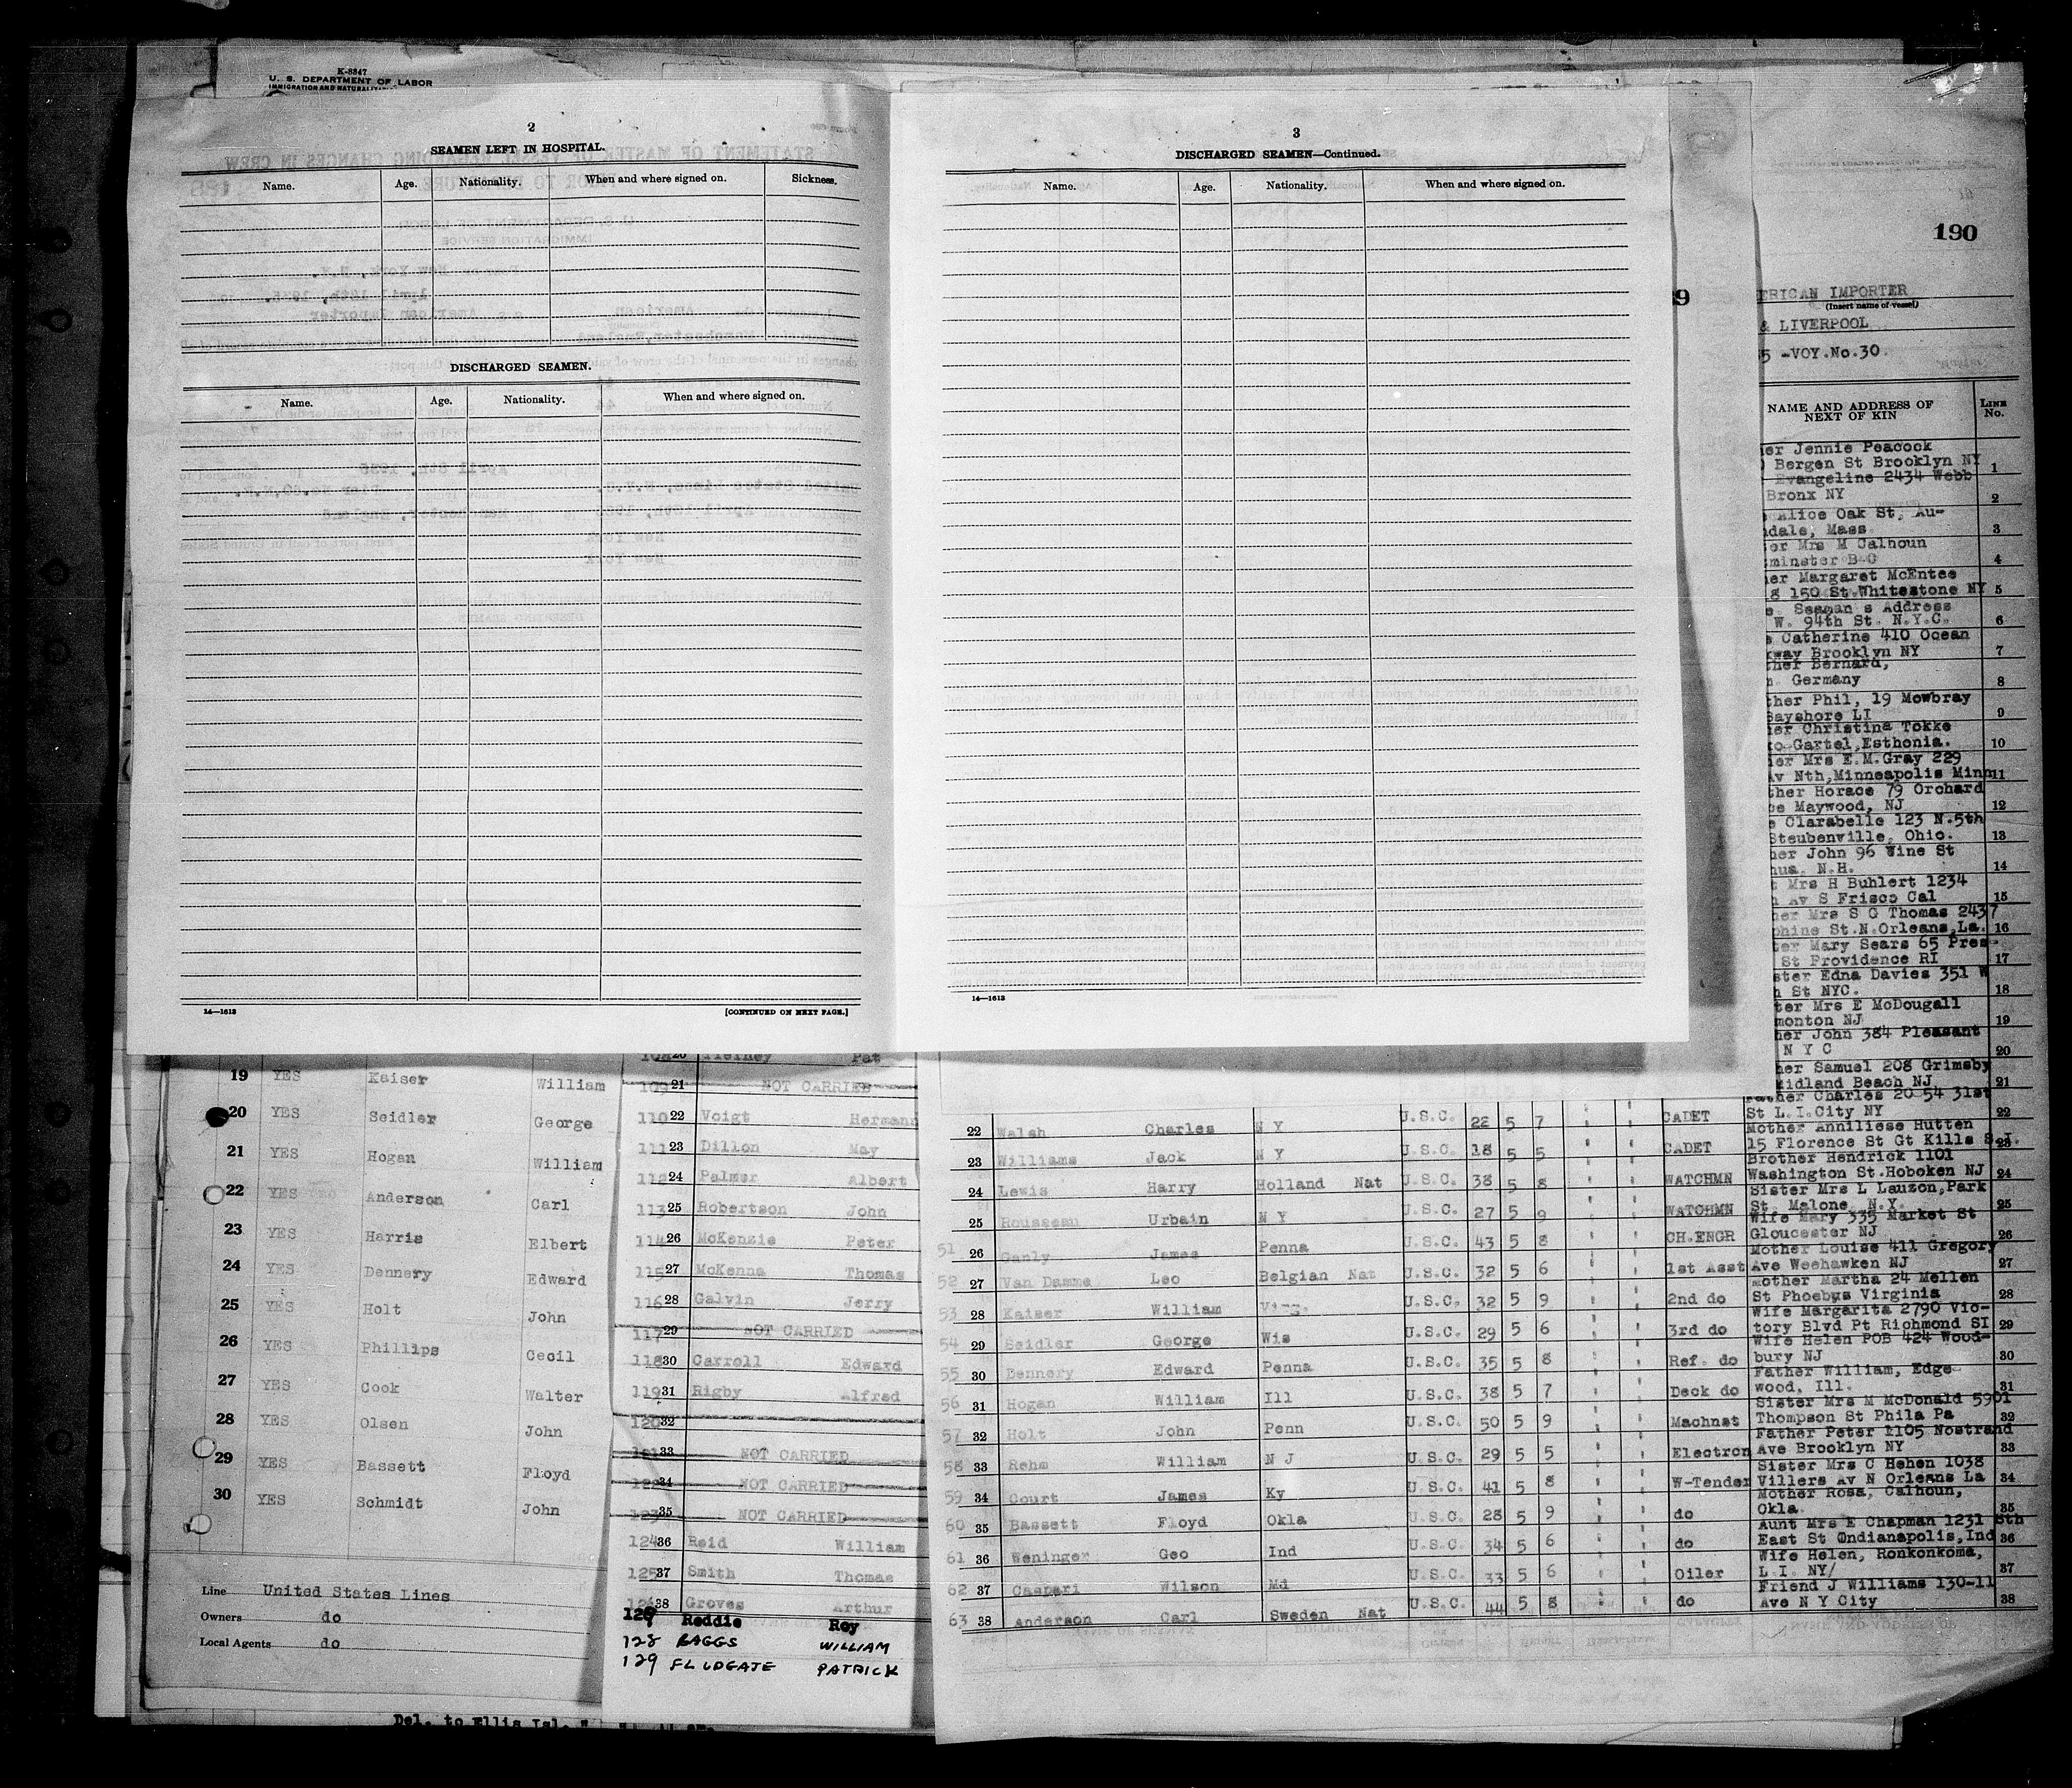 K-8347
U. S. DEPARTMENT OF LABOR
2
SEAMEN LEFT IN HOSPITAL.
Name. Age. Nationality. When and where signed on. Sickness.
DISCHARGED SEAMEN.
Name. Age. Nationality. When and where signed on.
14—1613 [CONTINUED ON NEXT PAGE.]
3
DISCHARGED SEAMEN—Continued.
Name. Age. Nationality. When and where signed on.
14—1613
190
ERICAN IMPORTER
(Insert name of vessel)
& LIVERPOOL
5 -VOY.No.30
NAME AND ADDRESS OF NEXT OF KIN
LINE No.
er Jennie Peacock
Bergen St Brooklyn NY 1
Evangeline 2434 Webb
Bronx NY 2
Alice Oak St, Au-
dale, Mass. 3
er Mrs M Calhoun
minster B C 4
er Margaret McEntee
8 150 St.Whitestone NY 5
Seaman s Address
W. 94th St. N.Y.C. 6
Catherine 410 Ocean
way Brooklyn NY 7
her Bernard,
Germany 8
ther Phil, 19 Mowbray
Bayshore LI 9
er Christina Tokke
Esthonia. 10
er Mrs E.M.Gray 229
Av Nth,Minneapolis Minn 11
ther Horace 79 Orchard
Maywood, NJ 12
Clarabelle 123 N.5th
Steubenville, Ohio. 13
her John 96 Vine St
hua, N.H. 14
Mrs H Buhlert 1234
Av S Frisco Cal 15
her Mrs S G Thomas 2437
phine St.N.Orleans,La. 16
ter Mary Sears 65 Pres-
St Providence RI 17
ster Edna Davies 351 W
h St NYC. 18
ter Mrs E McDougall
monton NJ 19
her John 384 Pleasant
N Y C 20
her Samuel 208 Grimsby
Midland Beach NJ 21
19 YES Kaiser William
20 YES Seidler George
21 YES Hogan William
22 YES Anderson Carl
23 YES Harris Elbert
24 YES Dennery Edward
25 YES Holt John
26 YES Phillips Cecil
27 YES Cook Walter
28 YES Olsen John
29 YES Bassett Floyd
30 YES Schmidt John
Line United States Lines
Owners do
Local Agents do
Del. to Ellis Isl.
108 20 Tierney Pat
109 21 NOT CARRIED
110 22 Voigt Hermann
111 23 Dillon May
112 24 Palmer Albert
113 25 Robertson John
114 26 McKenzie Peter
115 27 McKenna Thomas
116 28 Galvin Jerry
117 29 NOT CARRIED
118 30 Carroll Edward
119 31 Rigby Alfred
120 32
121 33 NOT CARRIED
122 34 NOT CARRIED
123 35 NOT CARRIED
124 36 Reid William
125 37 Smith Thomas
126 38 Groves Arthur
129 Reddie Roy
128 BAGGS WILLIAM
129 FLUDGATE PATRICK
22 Walsh Charles N Y U.S.C. 22 5 7 CADET Father Charles 20 54 31st
St L.I.City NY 22
23 Williams Jack N Y U.S.C. 18 5 5 CADET Mother Anniliese Hutten
15 Florence St Gt Kills S.I. 23
24 Lewis Harry Holland Nat U.S.C. 38 5 8 WATCHMN Brother Hendrick 1101
Washington St.Hoboken NJ 24
25 Rousseau Urbain N Y U.S.C. 27 5 9 WATCHMN Sister Mrs L Lauzon,Park
St. Malone, N.Y. 25
51 26 Ganly James Penna U.S.C. 43 5 8 CH.ENGR Wife Mary 335 Market St
Gloucester NJ 26
52 27 Van Damme Leo Belgian Nat U.S.C. 32 5 6 1st Asst Mother Louise 411 Gregory
Ave Weehawken NJ 27
53 28 Kaiser William Virg. U.S.C. 32 5 9 2nd do Mother Martha 24 Mellen
St Phoebus Virginia 28
54 29 Seidler George Wis U.S.C. 29 5 6 3rd do Wife Margarita 2790 Vic-
tory Blvd Pt Richmond SI 29
55 30 Dennery Edward Penna U.S.C. 35 5 8 Ref. do Wife Helen POB 424 Wood-
bury NJ 30
56 31 Hogan William Ill U.S.C. 38 5 7 Deck do Father William, Edge-
wood, Ill. 31
57 32 Holt John Penn U.S.C. 50 5 9 Machnst Sister Mrs M McDonald 5901
Thompson St Phila Pa 32
58 33 Rehm William N J U.S.C. 29 5 5 Electron Father Peter 1105 Nostrand
Ave Brooklyn NY 33
59 34 Court James Ky U.S.C. 41 5 8 W-Tender Sister Mrs C Hehen 1038
Villers Av N Orleans La 34
60 35 Bassett Floyd Okla U.S.C. 28 5 9 do Mother Rosa, Calhoun,
Okla. 35
61 36 Weninger Geo Ind U.S.C. 34 5 6 do Aunt Mrs E Chapman 1231 8th
East St Ondianapolis,Ind 36
62 37 Caspari Wilson Md U.S.C. 33 5 6 Oiler Wife Helen, Ronkonkoma,
L.I. NY/ 37
63 38 Anderson Carl Sweden Nat U.S.C. 44 5 8 do Friend J Williams 130-11
Ave N Y City 38